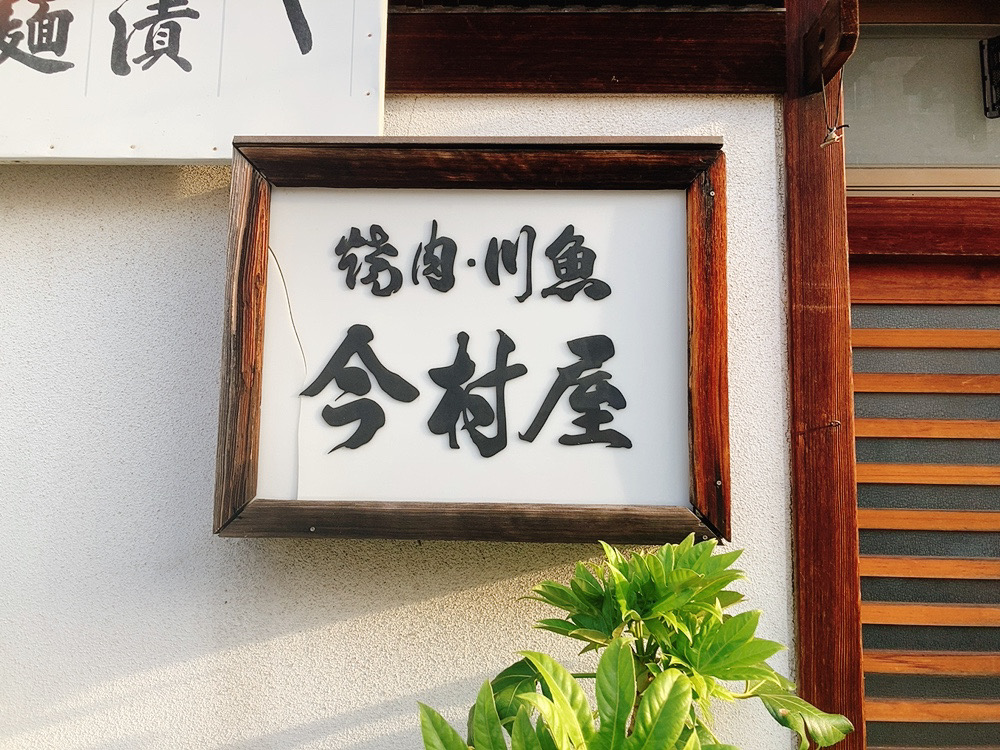 麺漬
焼肉・川魚
今村屋